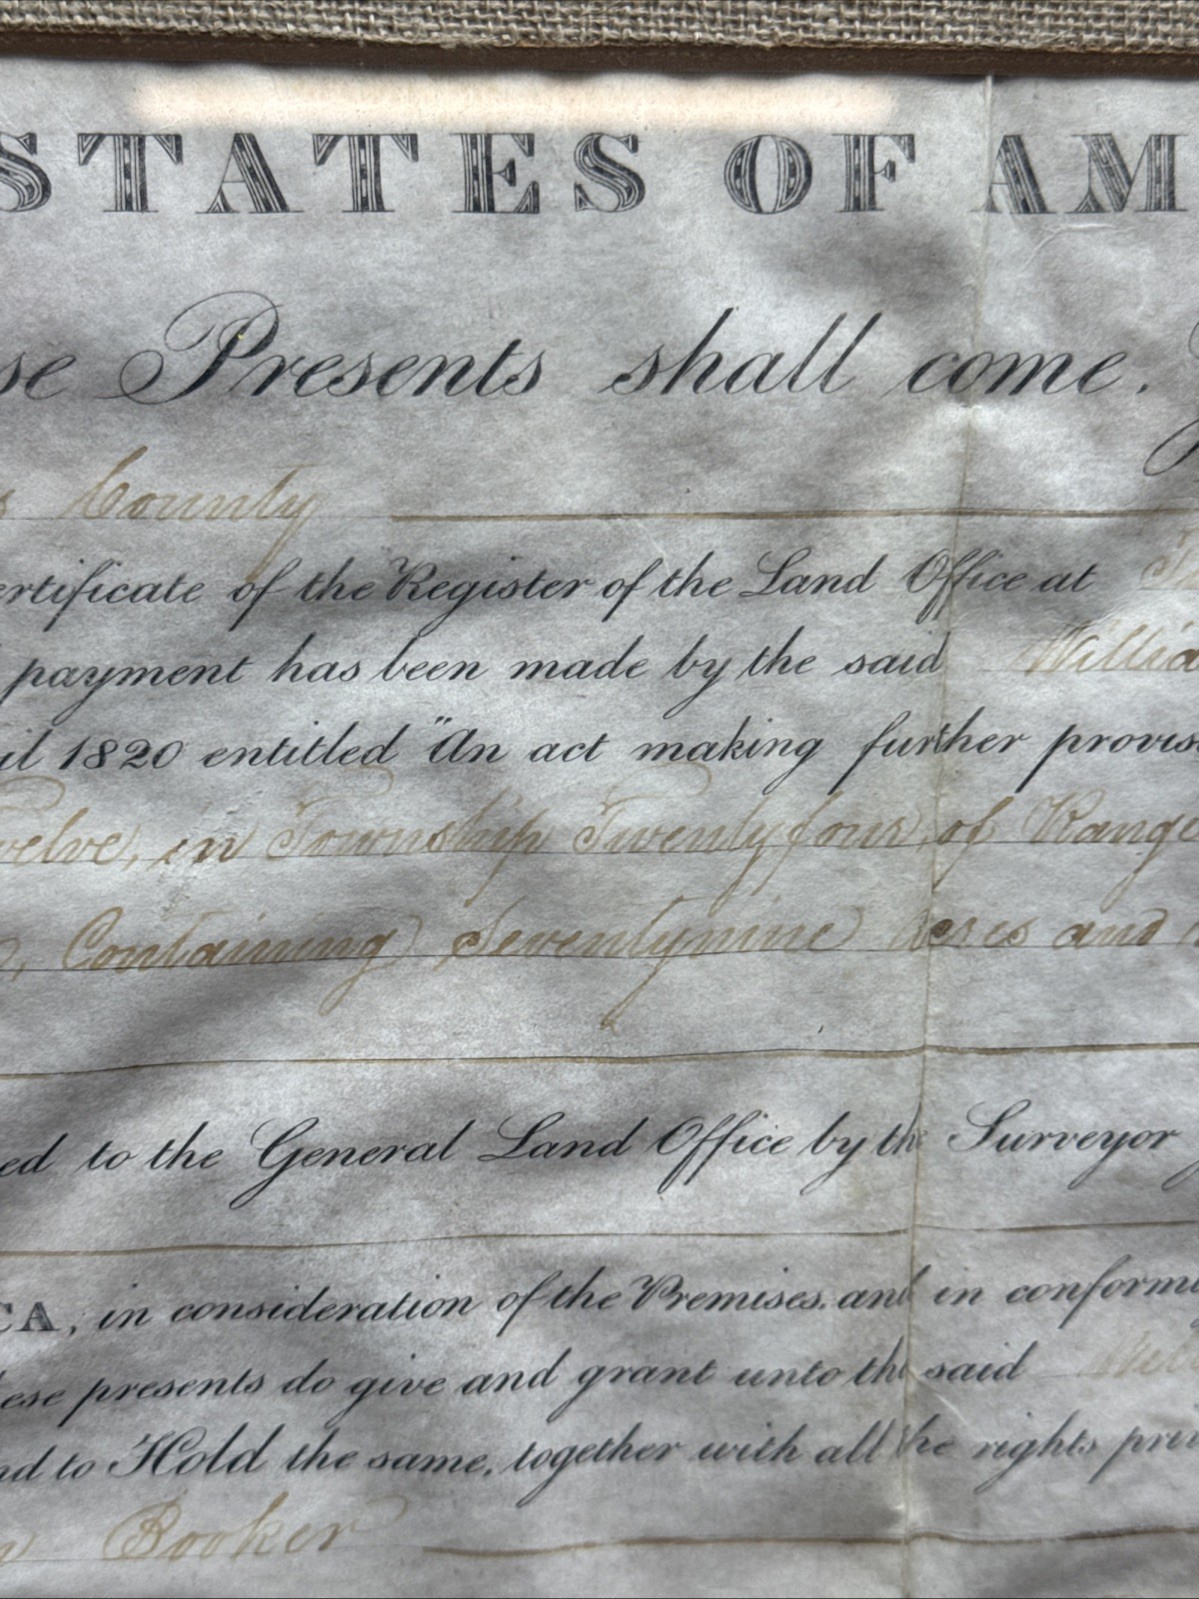 STATES OF AM
se Presents shall come.
County
ertificate of the Register of the Land Office at
payment has been made by the said Willia
il 1820 entitled "An act making further provis
welve, in Township Twentyfour, of Range
Containing Seventynine Acres and
ed to the General Land Office by the Surveyor
CA, in consideration of the Premises. and in conform
ese presents do give and grant unto the said
nd to Hold the same, together with all the rights, pri
Booker